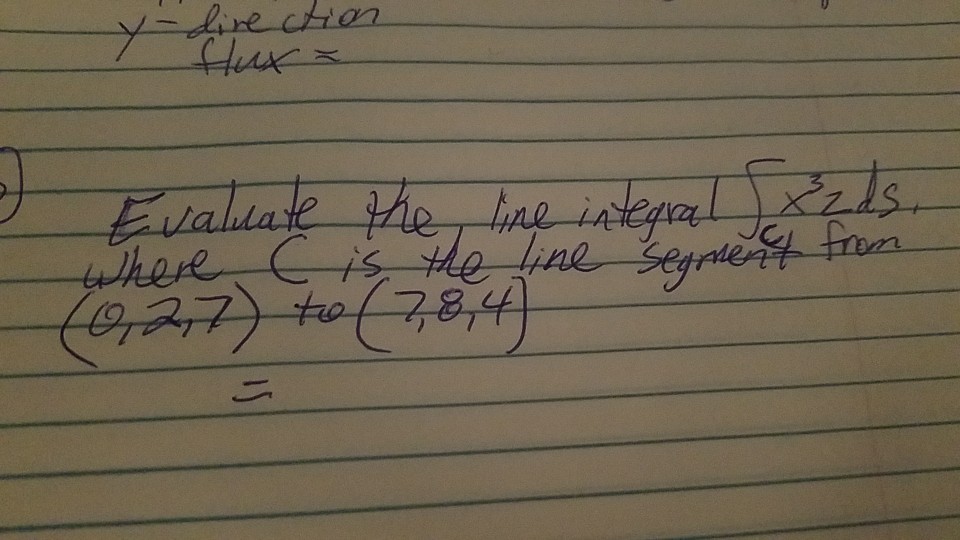 y-direction
flux =
Evaluate the line integral ∫x³z ds,
C
where C is the line segment from
(0,2,7) to (7,8,4)
=